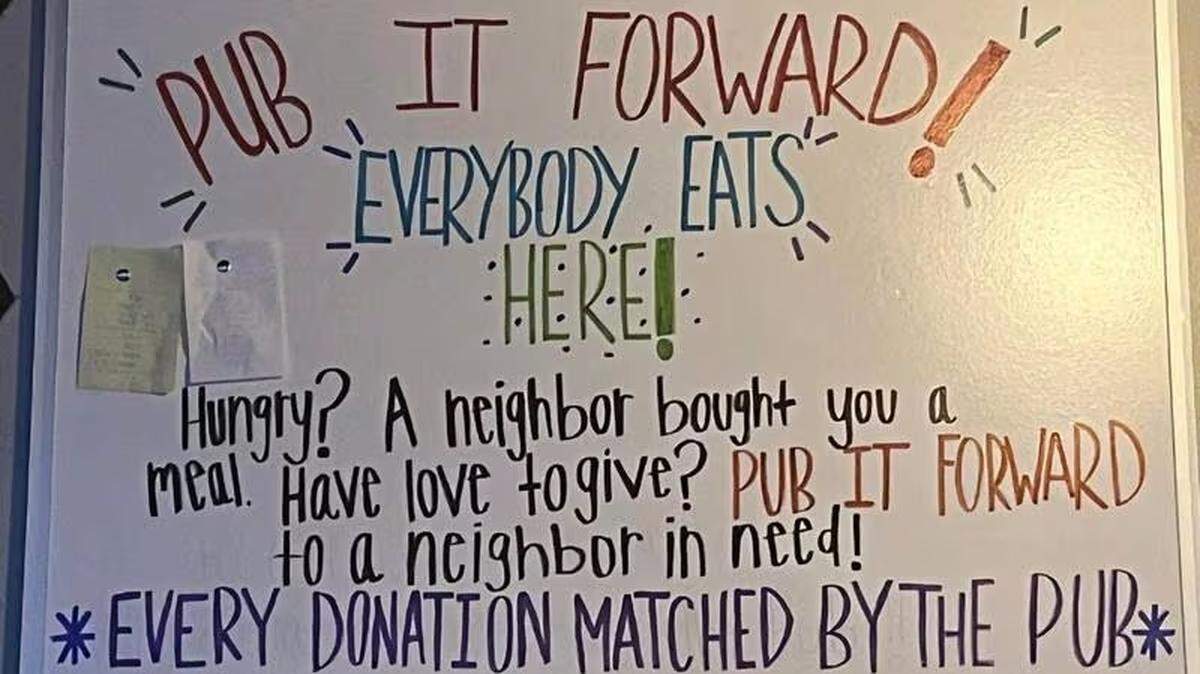 PUB IT FORWARD!
EVERYBODY EATS
HERE!
Hungry? A neighbor bought you a
meal. Have love to give? PUB IT FORWARD
to a neighbor in need!
*EVERY DONATION MATCHED BY THE PUB*